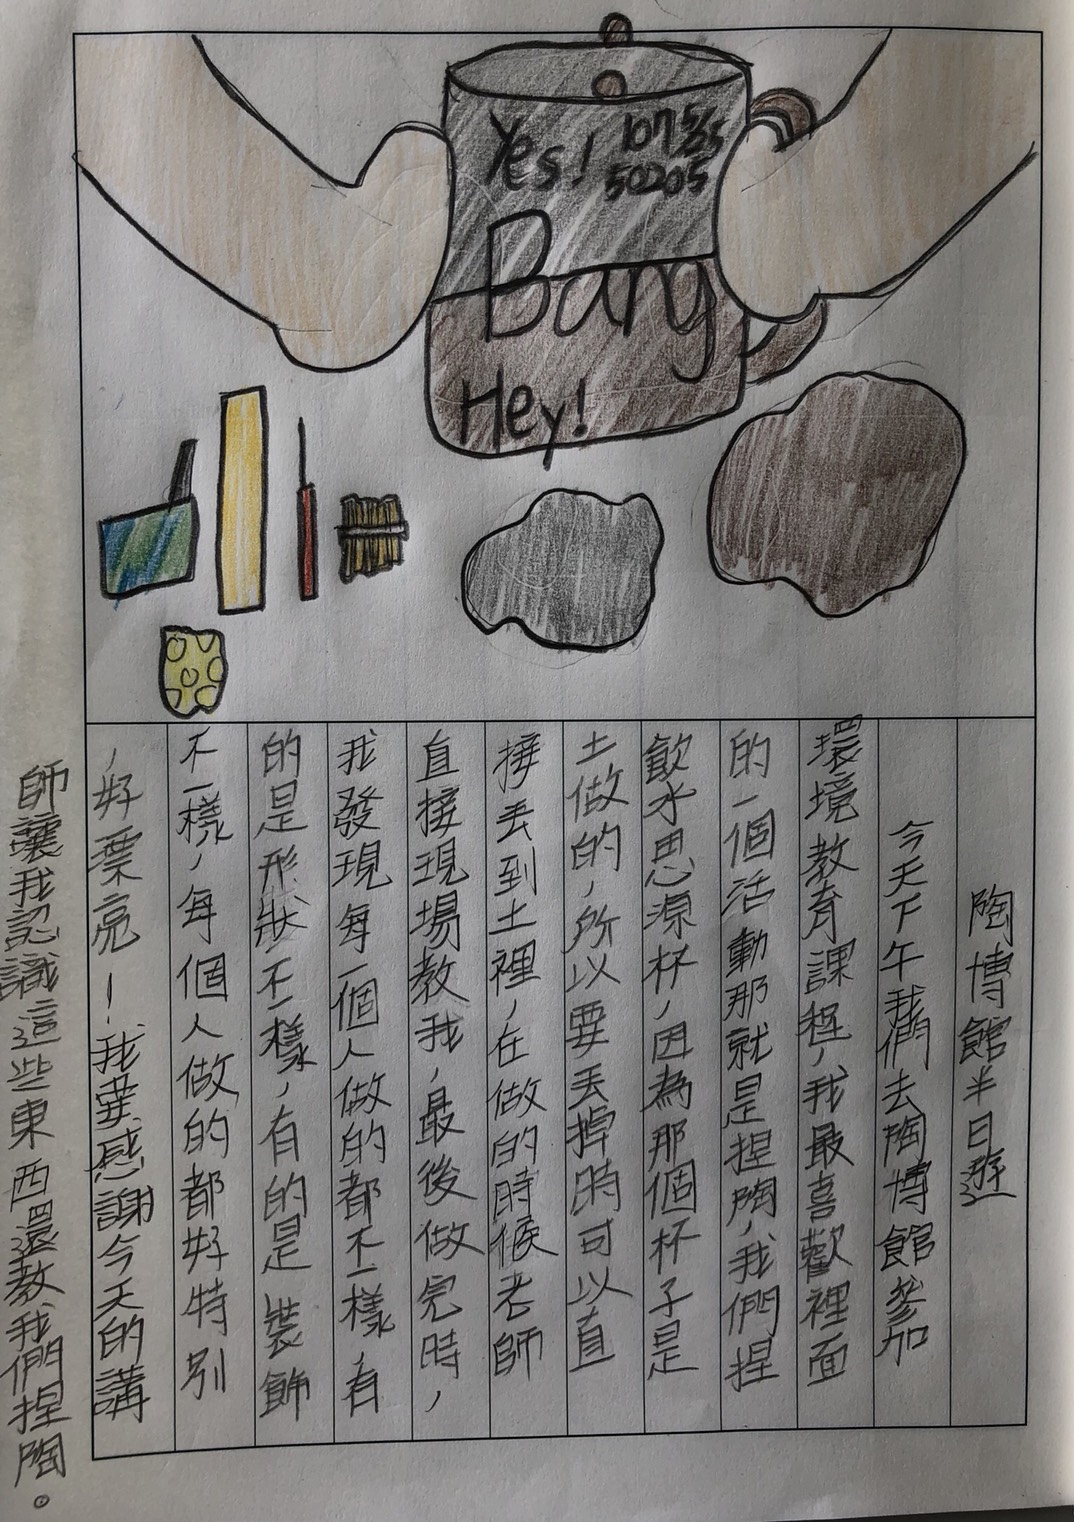 Yes! 107 5/25
50205
Bang
Hey!
陶博館半日遊
今天下午我們去陶博館參加
環境教育課程,我最喜歡裡面
的一個活動那就是捏陶,我們捏
飲水思源杯,因為那個杯子是
土做的,所以要丟掉時可以直
接丟到土裡,在做的時候老師
直接現場教我,最後做完時,
我發現每一個人做的都不一樣,有
的是形狀不一樣,有的是裝飾
不一樣,每個人做的都好特別
,好漂亮!我要感謝今天的講
師讓我認識這些東西還教我們捏陶。